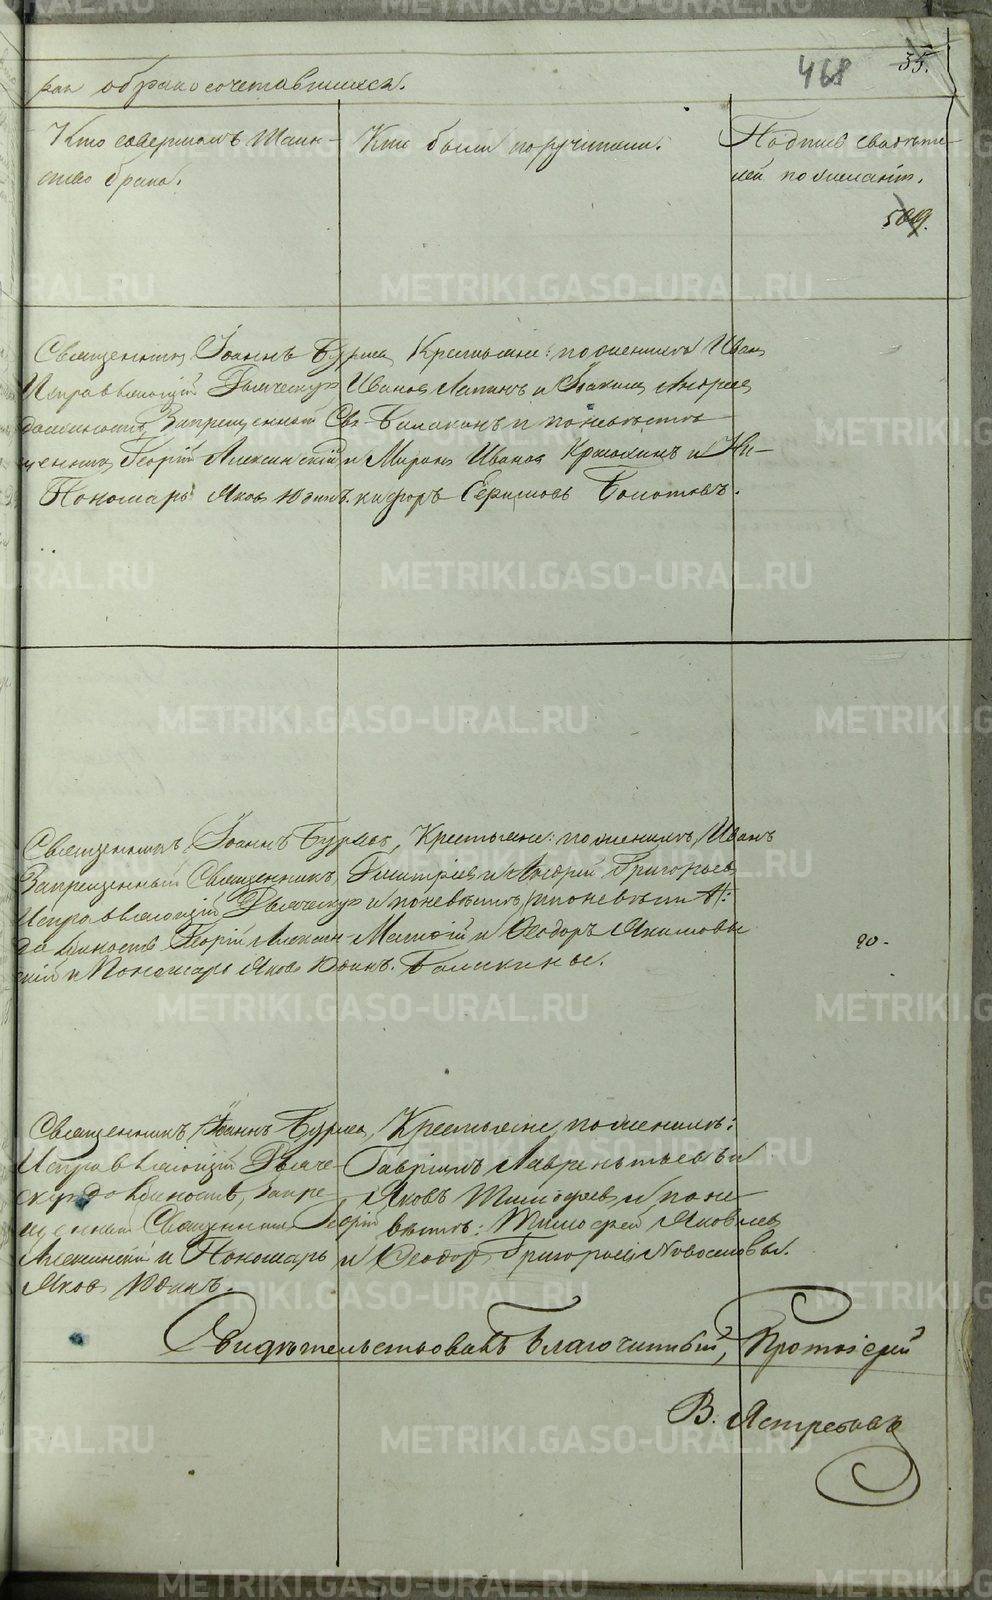 468 35.
обракосочетавшихся.
Кто совершалъ Таин-
ство брака.
Кто были поручители.
Подпись свидѣте-
лей по желанію.
509.
Священникъ Іоаннъ Бурма
Исправляющій Дьяческую
должность Запрещенный Свя-
щенникъ Георгій Алексинскій и
Пономарь Яковъ Юдинъ.
Крестьяне: по женихѣ Иванъ
Ивановъ Лапинъ и Іоакимъ Андреевъ
Балакинъ и по невѣстѣ
Миронъ Ивановъ и Ни-
кифоръ Болотовъ.
Священникъ Іоаннъ Бурма,
Запрещенный Священникъ,
Исправляющій Дьяческую
должность Георгій Алексин-
скій и Пономарь Яковъ Юдинъ.
Крестьяне: по женихѣ Иванъ
Дмитріевъ и Андрей Григорьевъ
и по невѣстѣ
Матвій и Ѳеодоръ Якимовы
Балакины.
20.
Священникъ Іоаннъ Бурма,
Исправляющій Дьяче-
скую должность, Запре-
щенный Священникъ Георгій
Алексинскій и Пономарь
Яковъ Юдинъ.
Крестьяне, по женихѣ:
Гавріилъ Лаврентьевъ и
Яковъ Тимофеевъ и по не-
вѣстѣ: Тимофей Яковлевъ
и Ѳеодоръ Григорьевъ Новоселовы.
Свидѣтельствовалъ Благочинный, Протоіерей
В. Ястребовъ
METRIKI.GASO-URAL.RU